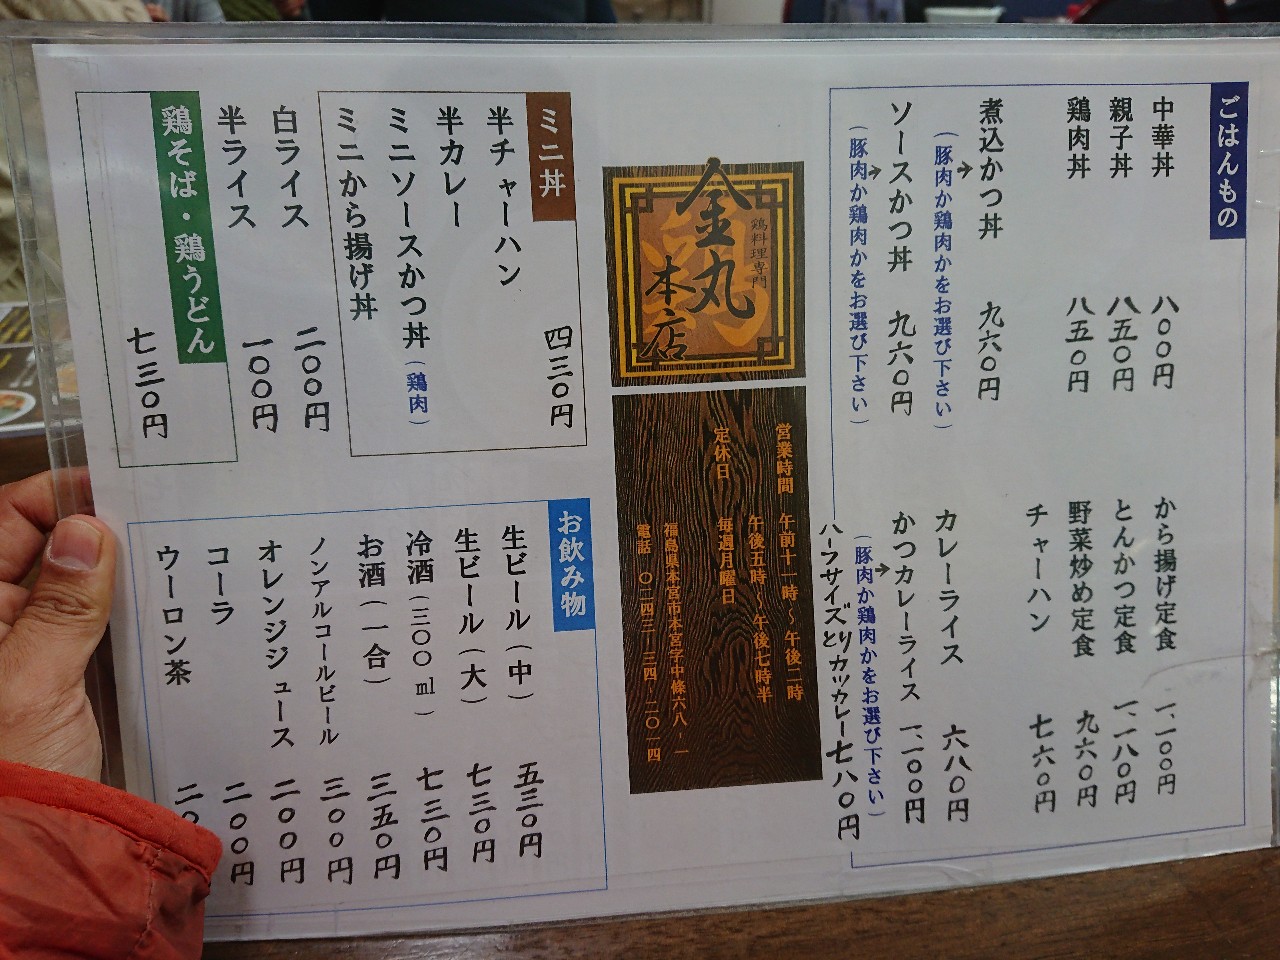 ごはんもの
中華丼 八〇〇円
親子丼 八五〇円
鶏肉丼 八五〇円
煮込かつ丼 九六〇円
(豚肉か鶏肉かをお選び下さい)
ソースかつ丼 九六〇円
(豚肉か鶏肉かをお選び下さい)
から揚げ定食 一、一〇〇円
とんかつ定食 一、一八〇円
野菜炒め定食 九六〇円
チャーハン 七六〇円
カレーライス 六八〇円
かつカレーライス 一、一〇〇円
(豚肉か鶏肉かをお選び下さい)
ハーフサイズとりカツカレー 七八〇円
鶏料理専門
金丸
本店
営業時間 午前十一時~午後二時
午後五時~午後七時半
定休日 毎週月曜日
福島県本宮市本宮字中條六八-一
電話 〇二四三-三四-二〇一四
ミニ丼 四三〇円
半チャーハン
半カレー
ミニソースかつ丼(鶏肉)
ミニから揚げ丼
白ライス 二〇〇円
半ライス 一〇〇円
鶏そば・鶏うどん
七三〇円
お飲み物
生ビール(中) 五三〇円
生ビール(大) 七三〇円
冷酒(三〇〇ml) 七三〇円
お酒(一合) 三五〇円
ノンアルコールビール 三〇〇円
オレンジジュース 二〇〇円
コーラ 二〇〇円
ウーロン茶 二〇